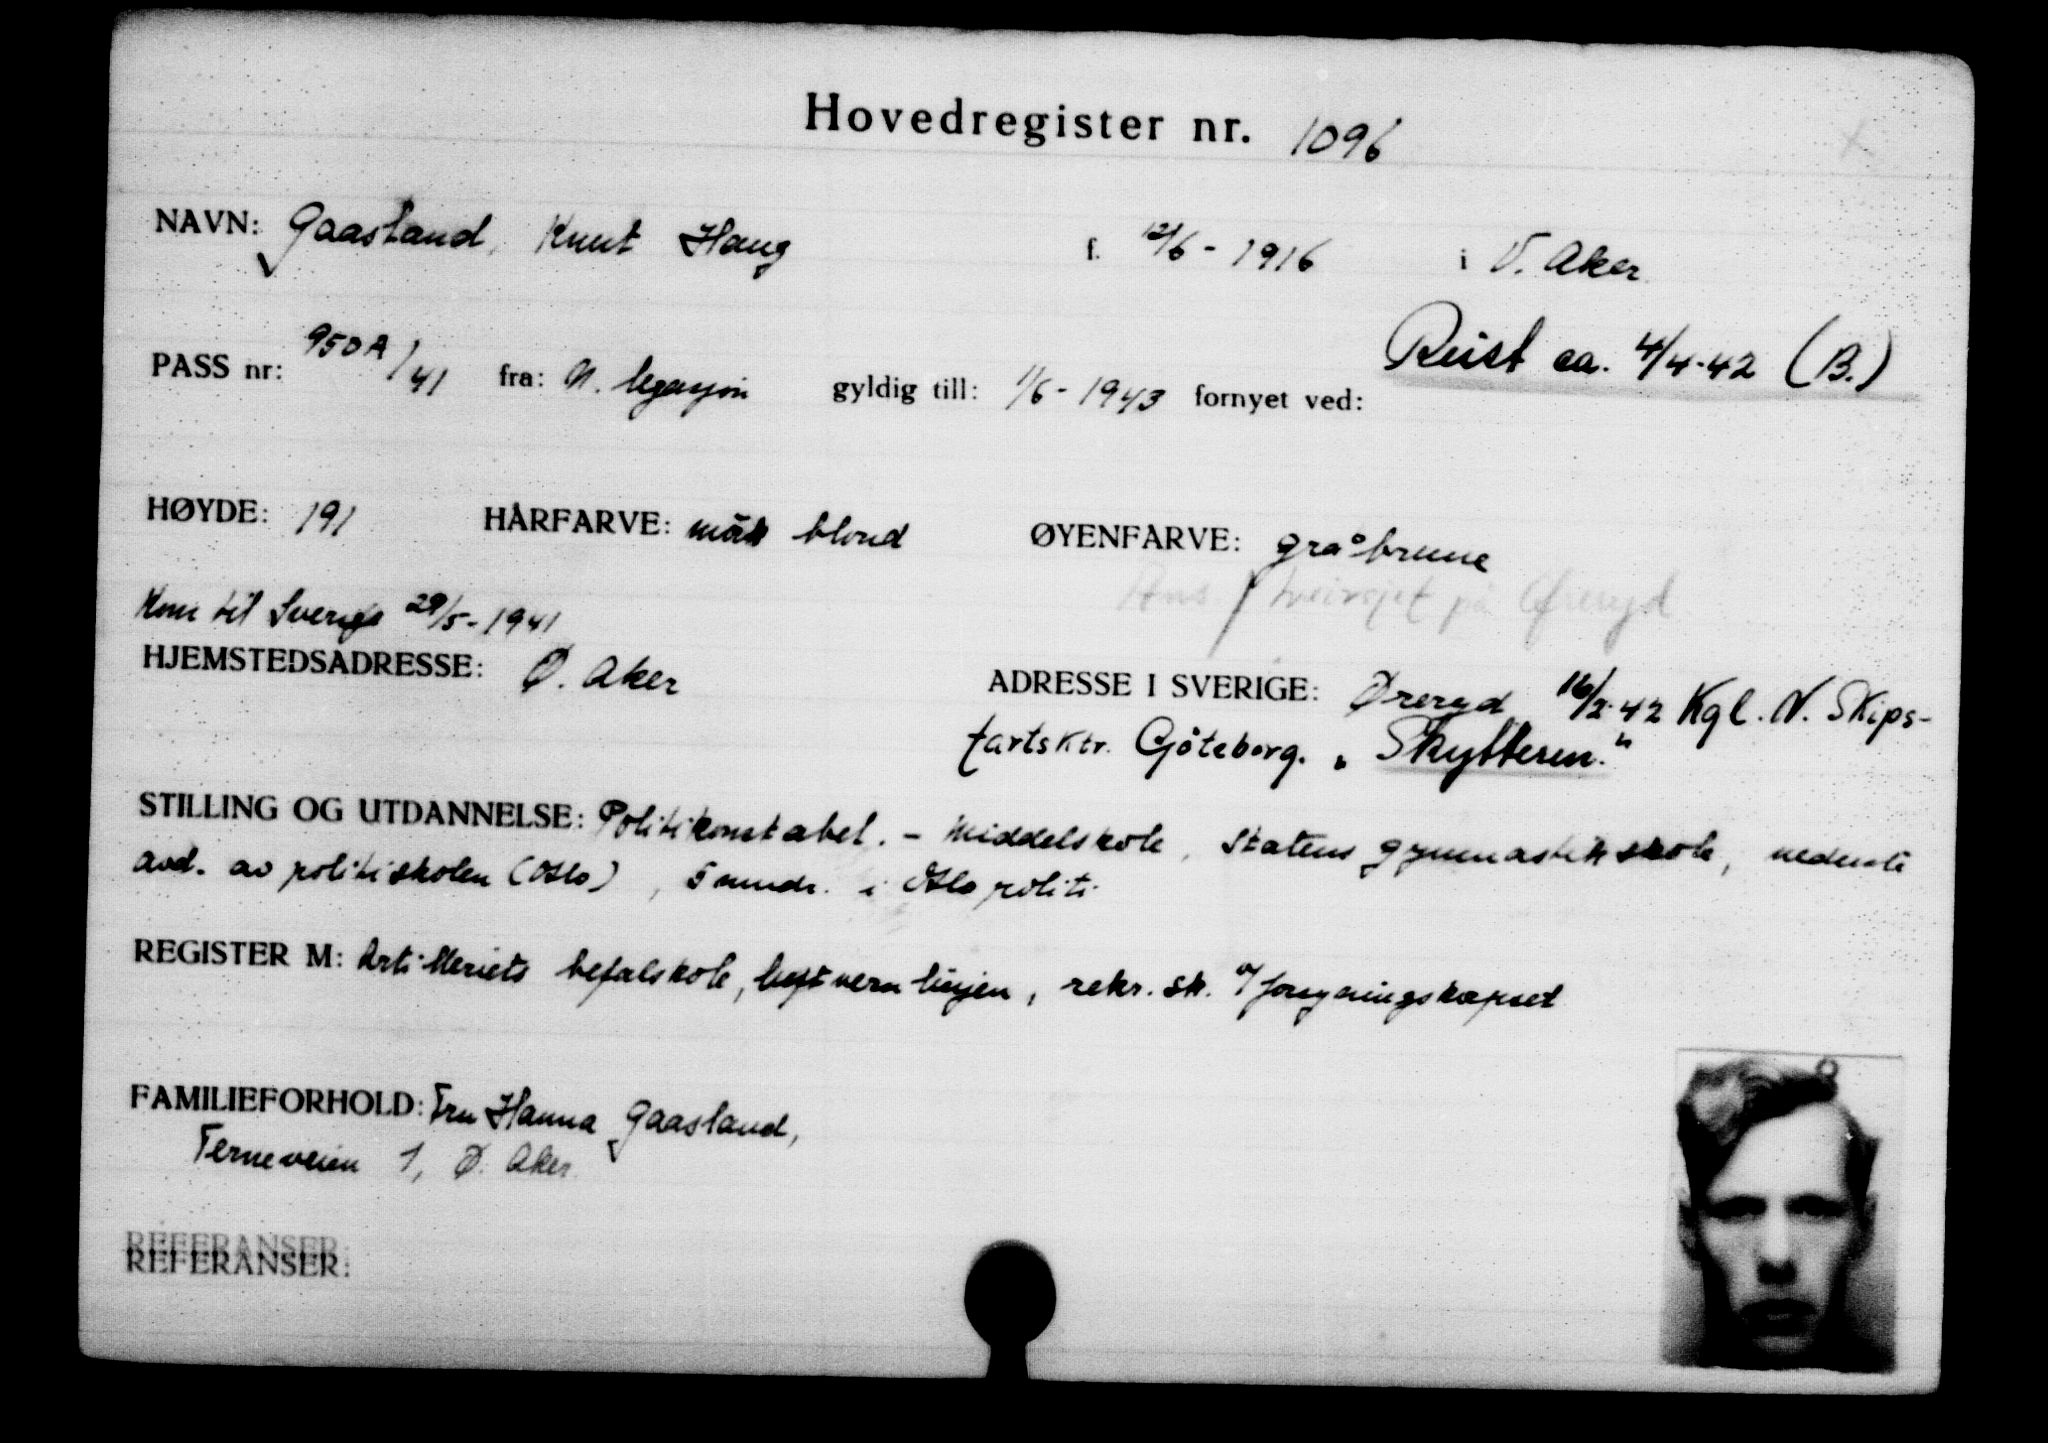 Hovedregister nr. 1096
NAVN: Gaasland, Knut Haug f. 12/6 - 1916 i V. Aker
Reist ca. 4/4-42 (B.)
PASS nr: 950A/41 fra: N. legasjon gyldig till: 1/6 - 1943 fornyet ved:
HØYDE: 191 HÅRFARVE: mörk blond ØYENFARVE: gråbrune
på Øreryd
Kom til Sverige 29/5 - 1941
HJEMSTEDSADRESSE: Ø. Aker ADRESSE I SVERIGE: Øreryd 16/2-42 Kgl. N. Skips-
fartsktr. Göteborg. "Skytteren."
STILLING OG UTDANNELSE: Politikonstabel. - Middelskole, Statens gymnastikkskole, nederste
avd. av politiskolen (Oslo), 5 mndr. i Oslo politi
REGISTER M: Artilleriets befalskole, luftvernlinjen, rekr. sk. v/ forsyningskorpset
FAMILIEFORHOLD: Fru Hanna Gaasland,
Terneveien 1, Ø. Aker.
REFERANSER:
REFERANSER: